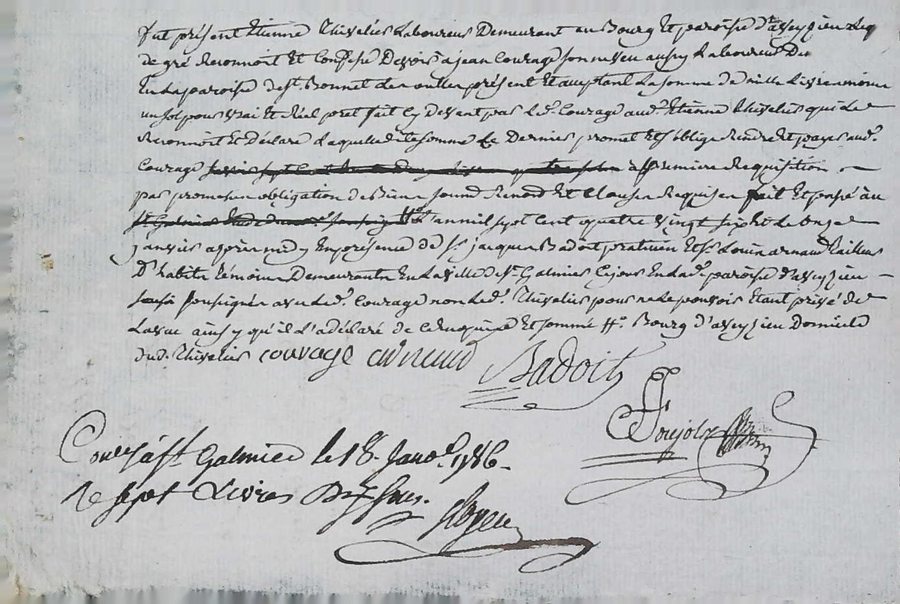 fut présent Etienne Thivelier Laboureur Demeurant au Bourg et paroisse d'aveyzieu Leq.
de gré Reconnoit et Confesse Devoir a jean Courage son neveu aussy Laboureur Du
En la paroisse de St. Bonnet les oulles présent Et aceptant La somme de mille Livres
un sol pour vrai Et Réel pret fait Cy Devant par led. Courage aud. Etienne Thivelier qui le
Reconnoit Et déclare Laquelle ditte somme Le Dernier promet Et s'oblige Rendre Et payer aud.
Courage a sa premiere Requisition
par promesse obligation de Biens soumd. Renond. Et Clauses Requises fait Et passé au
an mil sept cent quatre vingt six Et le onze
janvier après midy En présence de Sr. jacques Badoit praticien Et Sr. Louis arnaud tailleur
D'habits témoins Demeurants En La ville de St. Galmier En lad. paroisse d'aveyzieu
soussigné avec led. Courage non led. Thivelier pour ne le pouvoir Etant privé de
La vue ainsy qu'il L'a déclaré de ce Enquis Et sommé #. Bourg d'aveyzieu Domicile
dud. Thivelier courage arnaud Badoit
Poujolz
Con.lé a St. Galmier le 18. Janv. 1786.
Re sept Livres Dix sous.